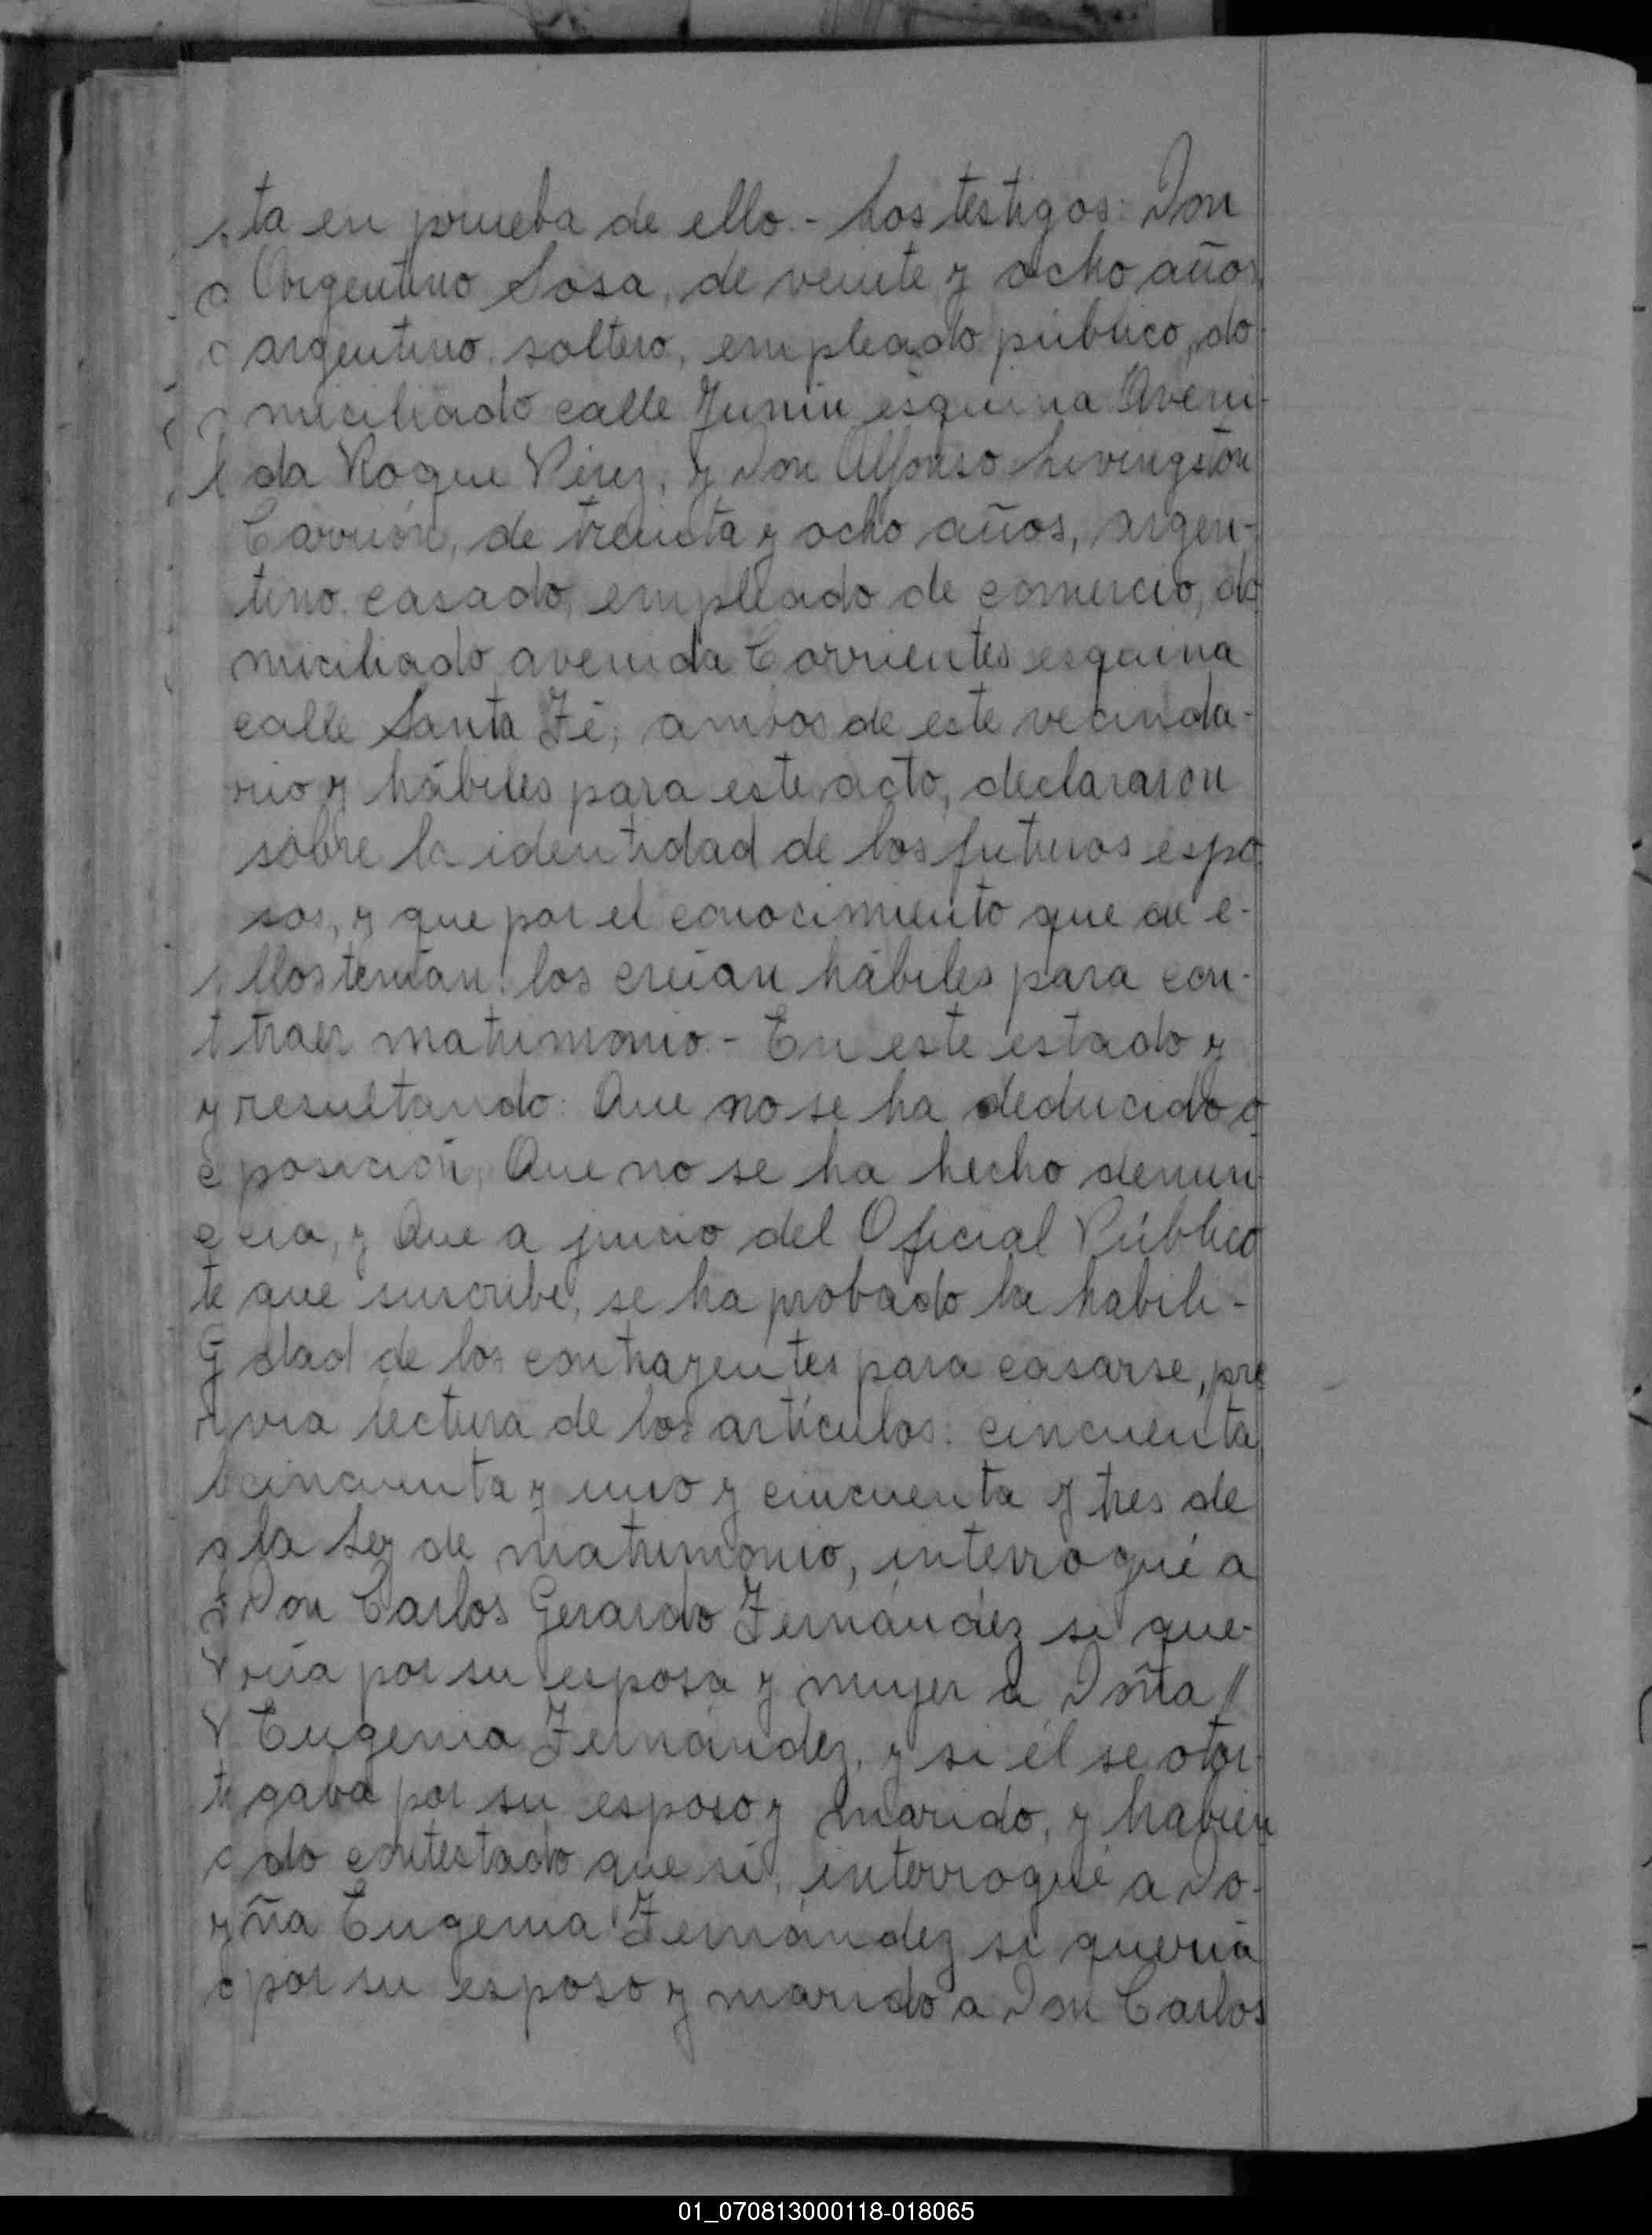 ta en prueba de ello.- Los testigos: Don
Argentino Sosa, de veinte y ocho años,
argentino, soltero, empleado público, do-
miciliado calle Junin esquina Aveni-
da Roque Pérez, y Don Alfonso Livingston
Carrión, de treinta y ocho años, argen-
tino, casado, empleado de comercio, do
miciliado avenida Corrientes esquina
calle Santa Fé; ambos de este vecinda-
rio y hábiles para este acto, declararon
sobre la identidad de los futuros espo
sos, y que por el conocimiento que de e-
llos tenían los creían hábiles para con-
traer matrimonio.- En este estado y
resultando: Que no se ha deducido o
posición, Que no se ha hecho denun-
cia, y Que a juicio del Oficial Público
que suscribe, se ha probado la habili-
dad de los contrayentes para casarse, pre
via lectura de los artículos: cincuenta
cincuenta y uno y cincuenta y tres de
la Ley de matrimonio, interrogué a
Don Carlos Gerardo Fernández si que-
ría por su esposa y mujer a Doña //
Eugenia Fernández, y si él se otor-
gaba por su esposo y marido, y habien
do contestado que sí, interrogué a Do-
ña Eugenia Fernández si quería
por su esposo y marido a Don Carlos
01_070813000118-018065